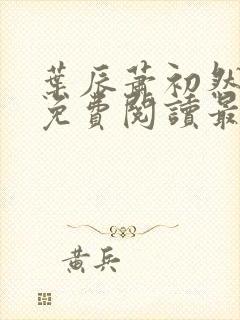 葉辰蕭初然
免費閱讀最
黃兵